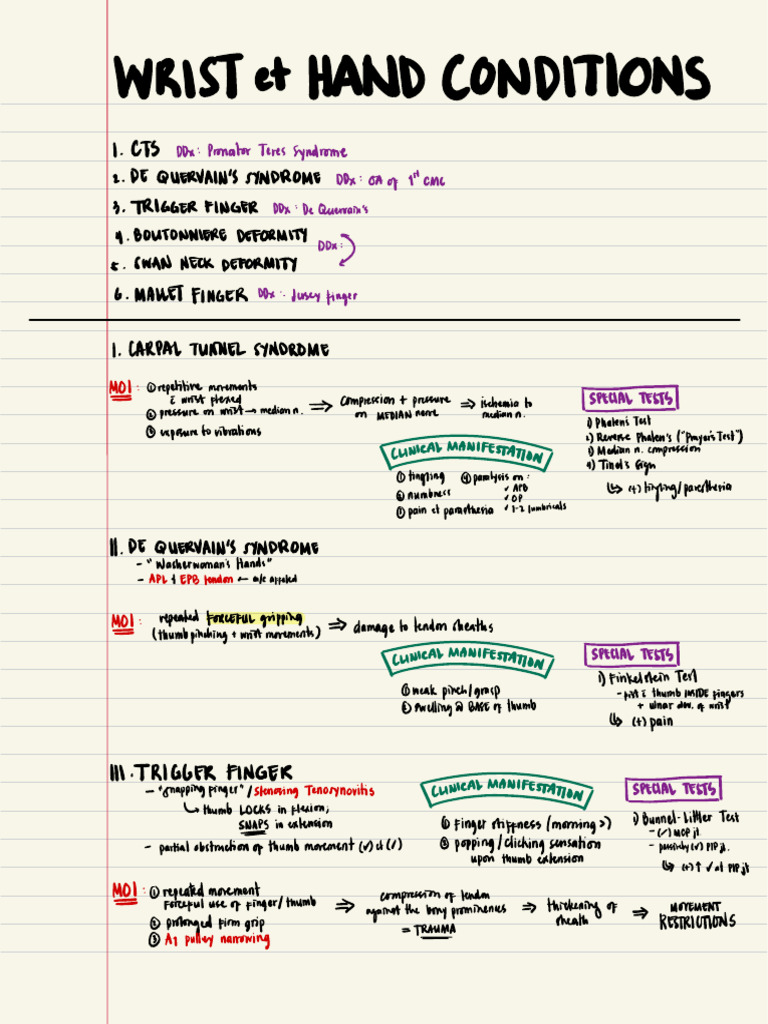 WRIST et HAND CONDITIONS
1. CTS DDx: Pronator Teres Syndrome
2. DE QUERVAIN'S SYNDROME DDx: OA of 1st CMC
3. TRIGGER FINGER DDx: De Quervain's
4. BOUTONNIERE DEFORMITY
DDx:
5. SWAN NECK DEFORMITY
6. MALLET FINGER DDx: Jersey finger
I. CARPAL TUNNEL SYNDROME
MOI: ① repetitive movements
c̄ wrist flexed
② pressure on wrist → median n.
③ exposure to vibrations
⇒ compression + pressure
on MEDIAN nerve
⇒ ischemia to
median n.
SPECIAL TESTS
1) Phalen's Test
2) Reverse Phalen's ("Prayer's Test")
3) Median n. compression
4) Tinel's Sign
↳ (+) tingling/paresthesia
CLINICAL MANIFESTATION
① tingling
② numbness
③ pain et paresthesia
④ paralysis on:
✓ APB
✓ OP
✓ 1-2 lumbricals
II. DE QUERVAIN'S SYNDROME
- "Washerwoman's Hands"
- APL & EPB tendon ← m/c affected
MOI: repeated FORCEFUL gripping
(thumb pinching + wrist movements)
⇒ damage to tendon sheaths
CLINICAL MANIFESTATION
① weak pinch/grasp
② swelling @ BASE of thumb
SPECIAL TESTS
1) Finkelstein Test
- fist c̄ thumb INSIDE fingers
+ ulnar dev. of wrist
↳ (+) pain
III. TRIGGER FINGER
- "Snapping Finger" / Stenosing Tenosynovitis
↳ thumb LOCKS in flexion;
SNAPS in extension
- partial obstruction of thumb movement (✓) et (/)
CLINICAL MANIFESTATION
① Finger stiffness (morning >)
② popping/clicking sensation
upon thumb extension
SPECIAL TESTS
1) Bunnel-Littler Test
- (✓) MCP jt.
- passively (✓) PIP jt.
↳ (+) ↑ ✓ at PIP jt
MOI: ① repeated movement
forceful use of finger/thumb
② prolonged firm grip
③ A1 pulley narrowing
⇒ compression of tendon
against the bony prominences
= TRAUMA
⇒ thickening of
sheath
⇒ MOVEMENT
RESTRICTIONS